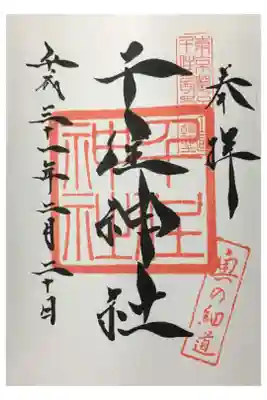 奉拝
千住神社
平成三十一年二月二十日
千住
神社
奥の細道